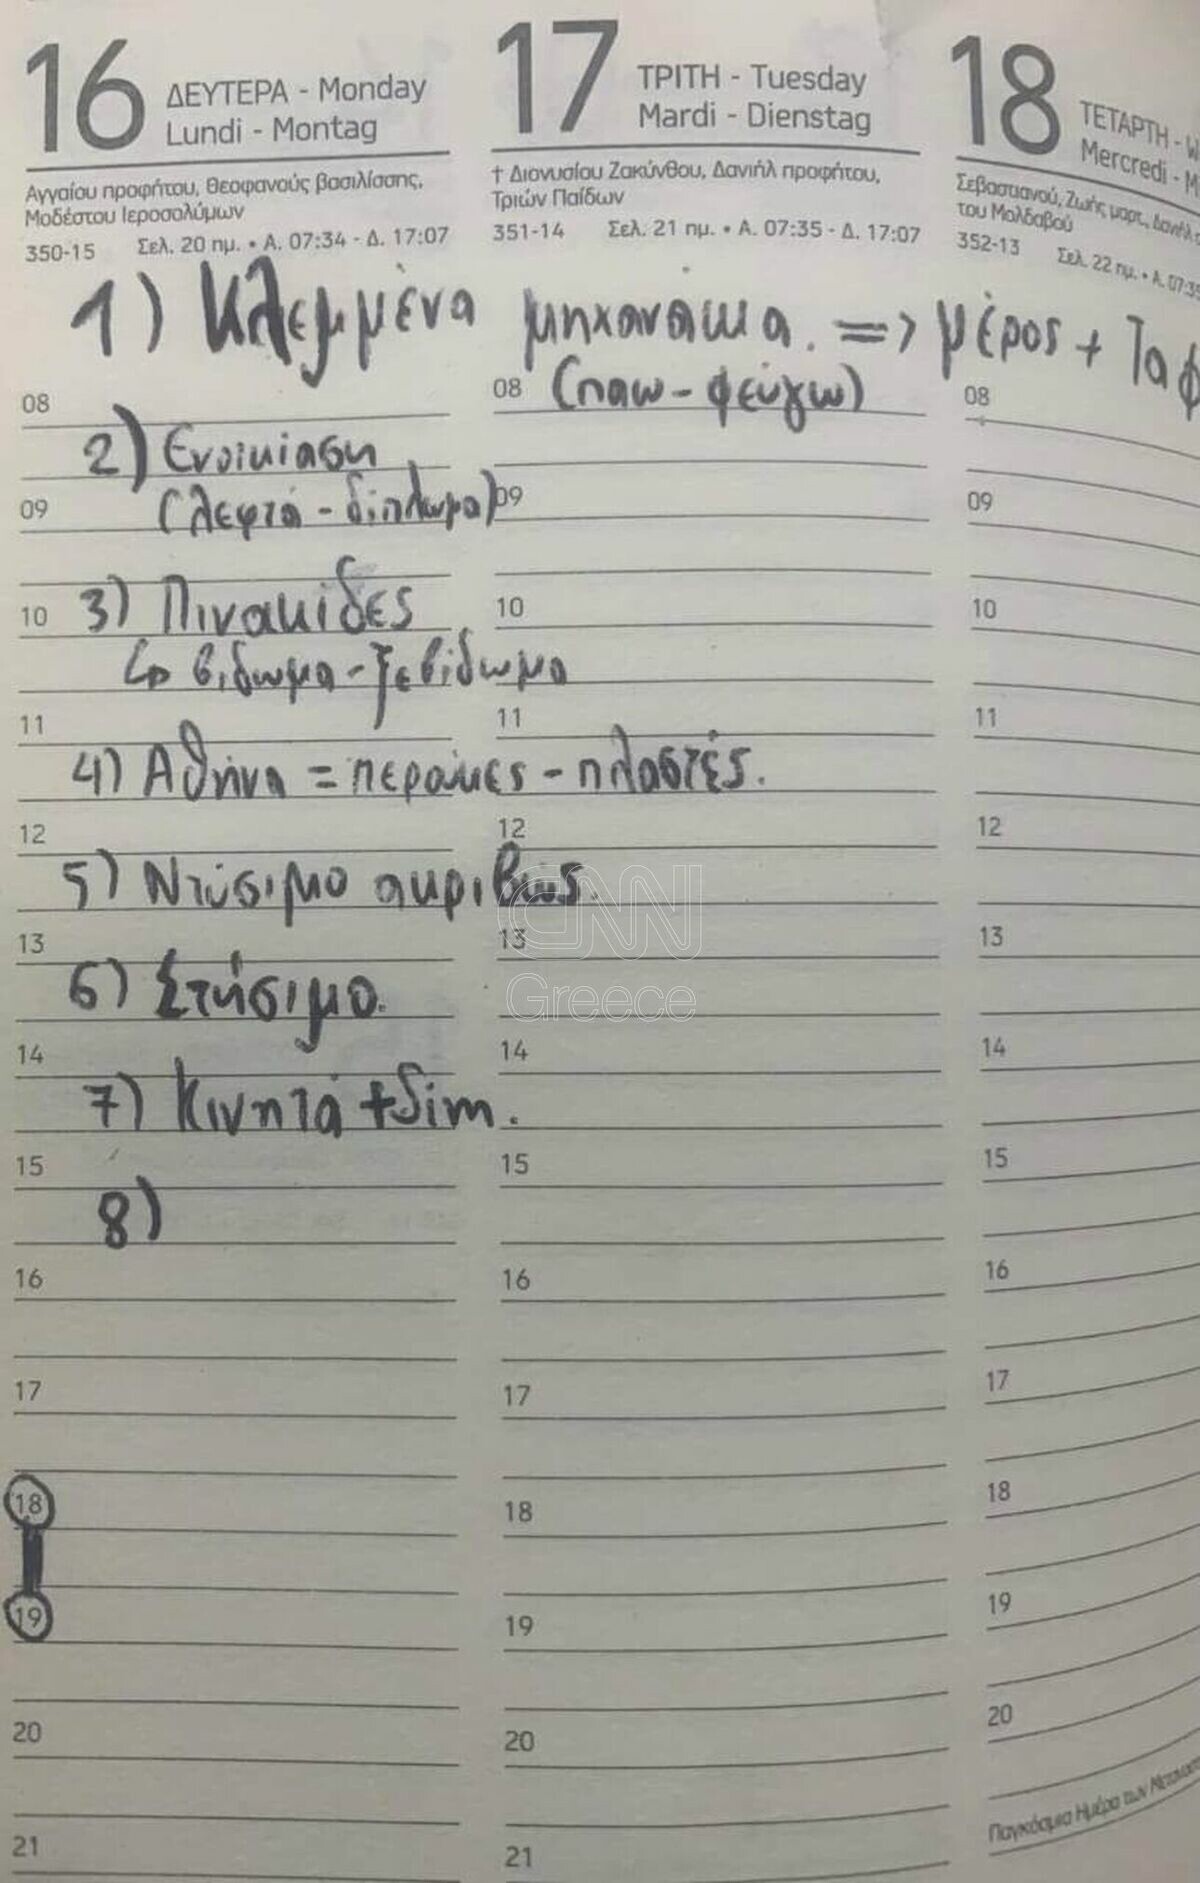 16 ΔΕΥΤΕΡΑ - Monday
Lundi - Montag
Αγγαίου προφήτου, Θεοφανούς βασιλίσσης,
Μοδέστου Ιεροσολύμων
350-15 Σελ. 20 ημ. • Α. 07:34 - Δ. 17:07
17 ΤΡΙΤΗ - Tuesday
Mardi - Dienstag
† Διονυσίου Ζακύνθου, Δανιήλ προφήτου,
Τριών Παίδων
351-14 Σελ. 21 ημ. • Α. 07:35 - Δ. 17:07
18 ΤΕΤΑΡΤΗ - W
Mercredi - M
Σεβαστιανού, Ζωής μαρτ., Δανιήλ
του Μολδαβού
352-13 Σελ. 22 ημ. • Α. 07:35
1) Κλεμμένα μηχανάκια. => μέρος + Τα φ
08 08 (παω - φεύγω) 08
2) Ενοικίαση
09 (λεφτά - δίπλωμα) 09 09
10 3) Πινακίδες 10 10
↳ βιδωμα - ξεβίδωμα
11 11 11
4) Αθήνα = περούκες - πλαστές.
12 12 12
5) Ντύσιμο ακριβώς.
CNN
13 13 13
Greece
6) Στήσιμο.
14 14 14
7) Κινητά + Sim.
15 15 15
8)
16 16 16
17 17 17
18 18 18
19 19 19
20 20 20
Παγκόσμια Ημέρα των
21 21